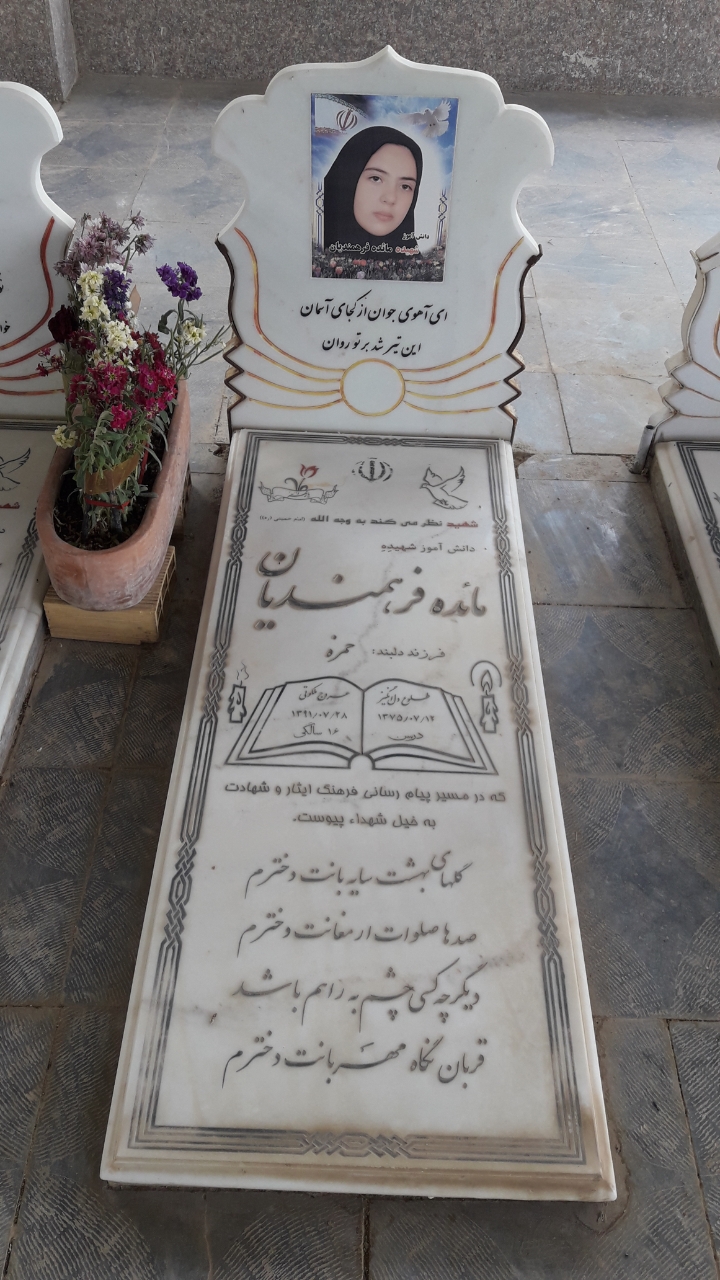 دانش آموز
شهیده مائده فرهمندیان
ای آهوی جوان از کجای آسمان
این تیر شد بر تو روان
شهید نظر می کند به وجه الله (امام خمینی (ره))
دانش آموز شهیده
مائده فرهمندیان
فرزند دلبند: حمزه
طلوع دل انگیز
۱۳۷۵/۰۷/۱۲
عروج ملکوتی
۱۳۹۱/۰۷/۲۸
۱۶ سالگی
که در مسیر پیام رسانی فرهنگ ایثار و شهادت
به خیل شهداء پیوست.
گلهای بهشت سایه بانت دخترم
صدها صلوات ارمغانت دخترم
دیگر چه کسی چشم به راهم باشد
قربان نگاه مهربانت دخترم